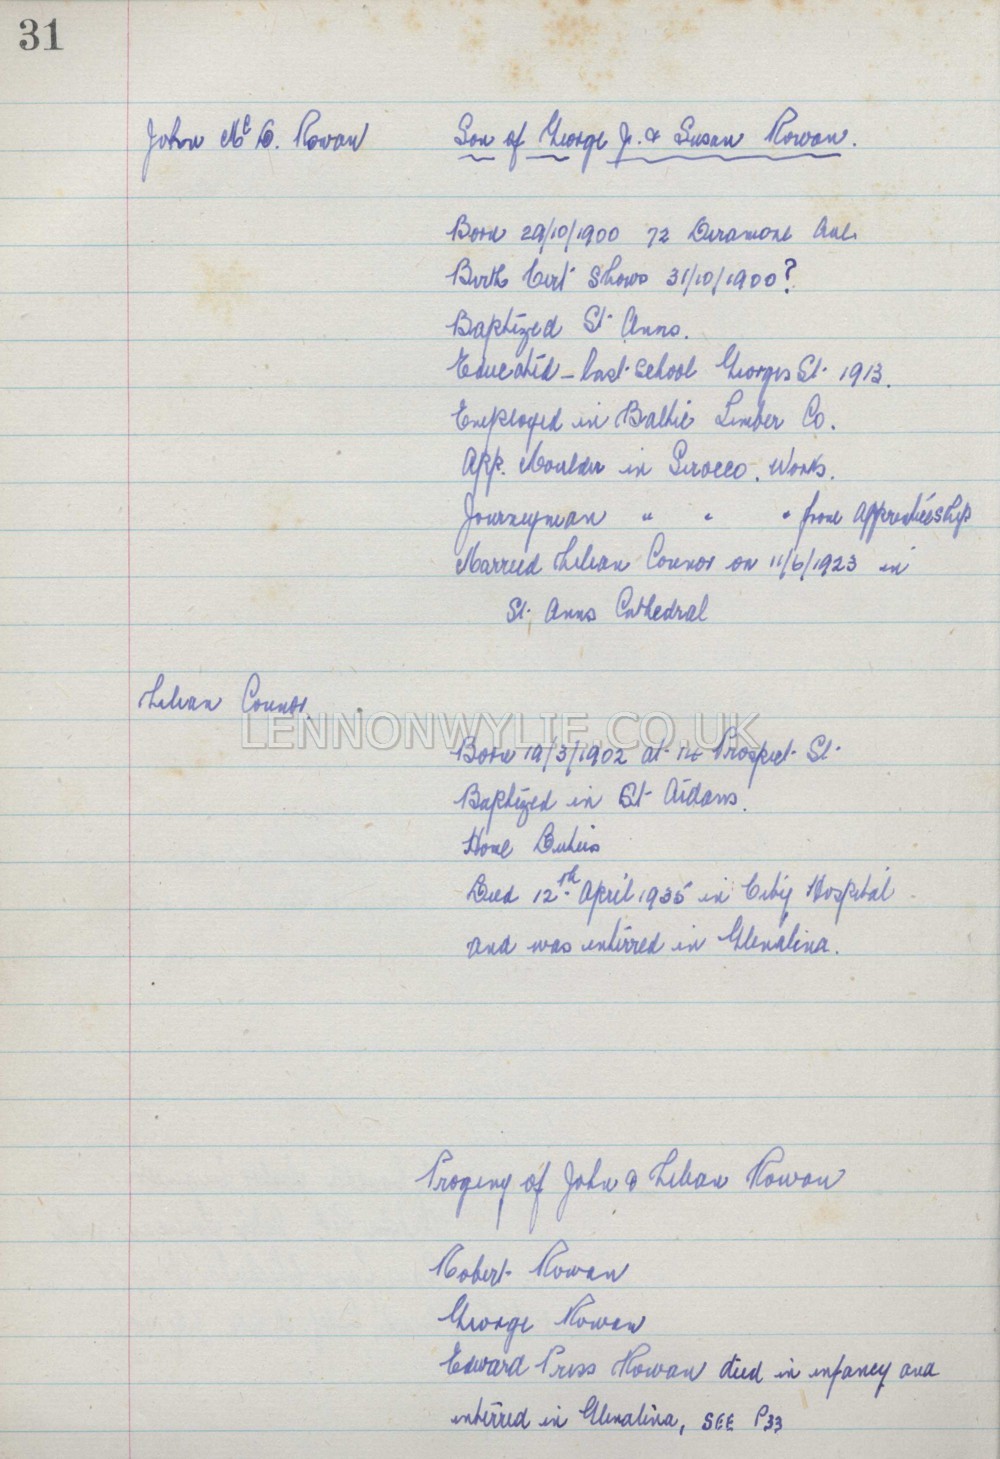 31
John Mc D. Rowan Son of George Jr. & Susan Rowan.
Born 29/10/1900 72 Deramore Ave.
Birth Cert shows 31/10/1900?
Baptized St. Anns.
Educated - last school Georges St. 1913.
Employed in Baltic Timber Co.
App. Moulder in Sirocco. Works.
Journeyman " " " from Apprenticeship
Married Lilian Connor on 11/6/1923 in
St. Anns Cathedral
Lilian Connor.
LENNONWYLIE.CO.UK
Born 19/3/1902 at 14 Prospect St.
Baptized in St Aidans.
Home Duties
Died 12th April 1935 in City Hospital
and was interred in Glenalina.
Progeny of John & Lilian Rowan
Robert Rowan
George Rowan
Edward Press Rowan died in infancy and
interred in Glenalina, SEE P33